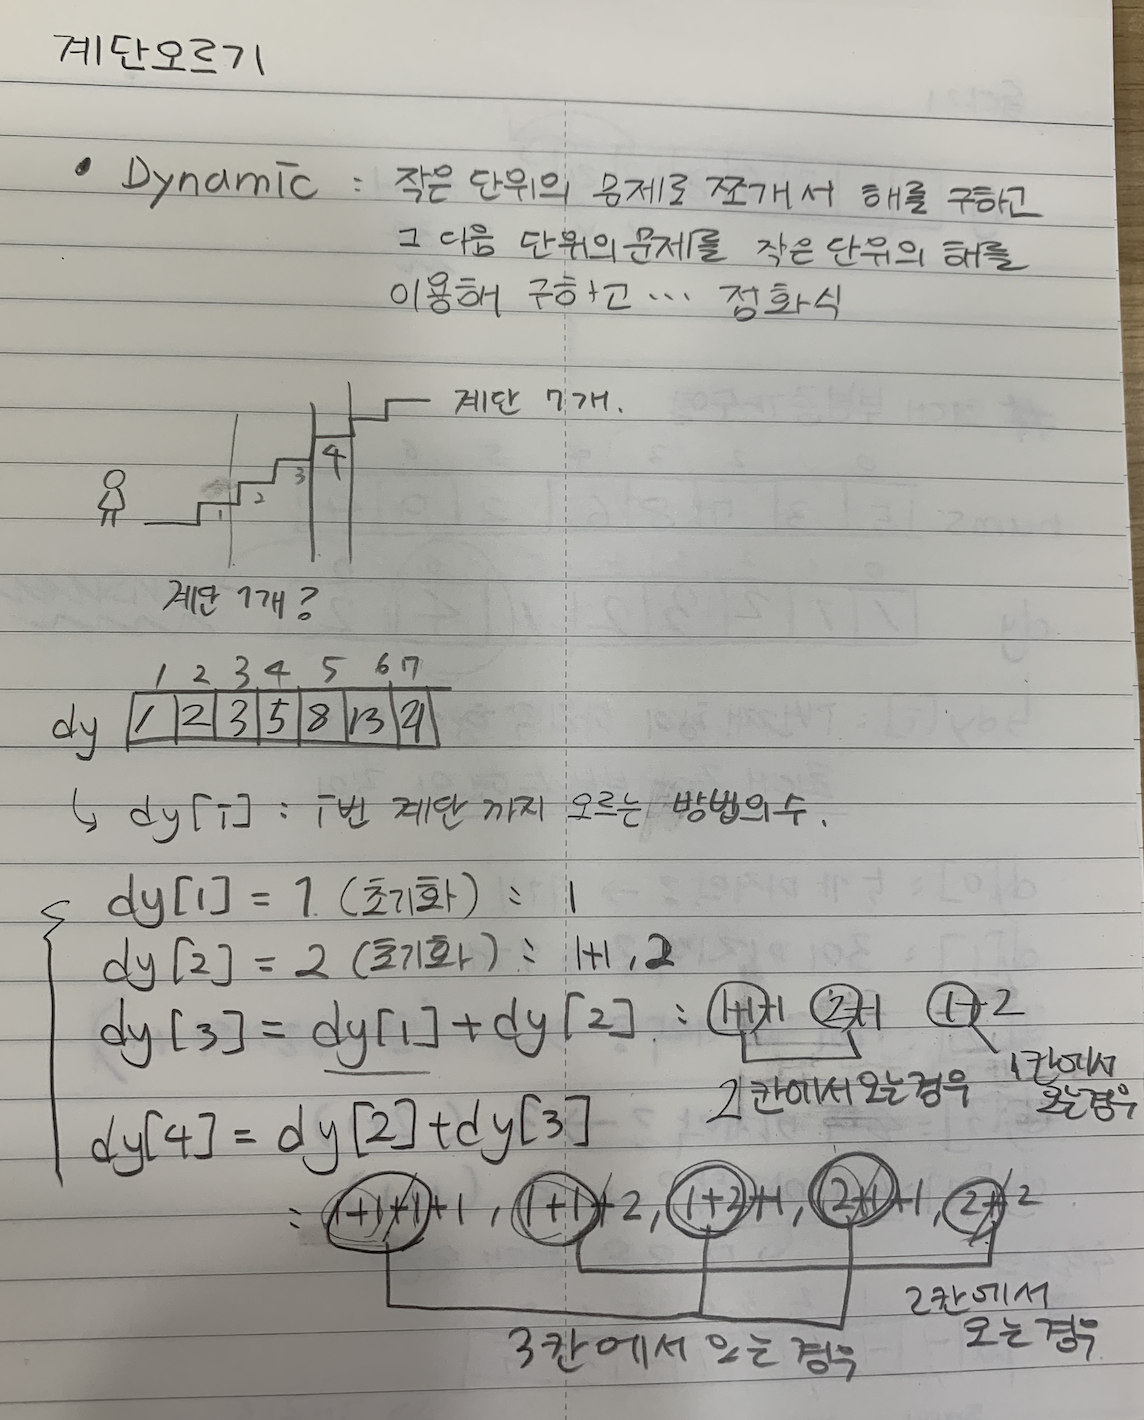 계단오르기
• Dynamic : 작은 단위의 문제로 쪼개서 해를 구하고
그 다음 단위의 문제를 작은 단위의 해를
이용해 구하고 ... 점화식
계단 7개.
4
3
2
1
계단 1개?
1 2 3 4 5 6 7
dy 1 2 3 5 8 13 21
↳ dy[i] : i번 계단 까지 오르는 방법의 수.
dy[1] = 1 (초기화) : 1
dy[2] = 2 (초기화) : 1+1, 2
dy[3] = dy[1] + dy[2] : 1+1+1 2+1 1+2
2칸에서 오는경우 1칸에서
오는경우
dy[4] = dy[2]+dy[3]
: 1+1+1+1, 1+1+2, 1+2+1, 2+1+1, 2+2
2칸에서
오는경우
3칸에서 오는 경우